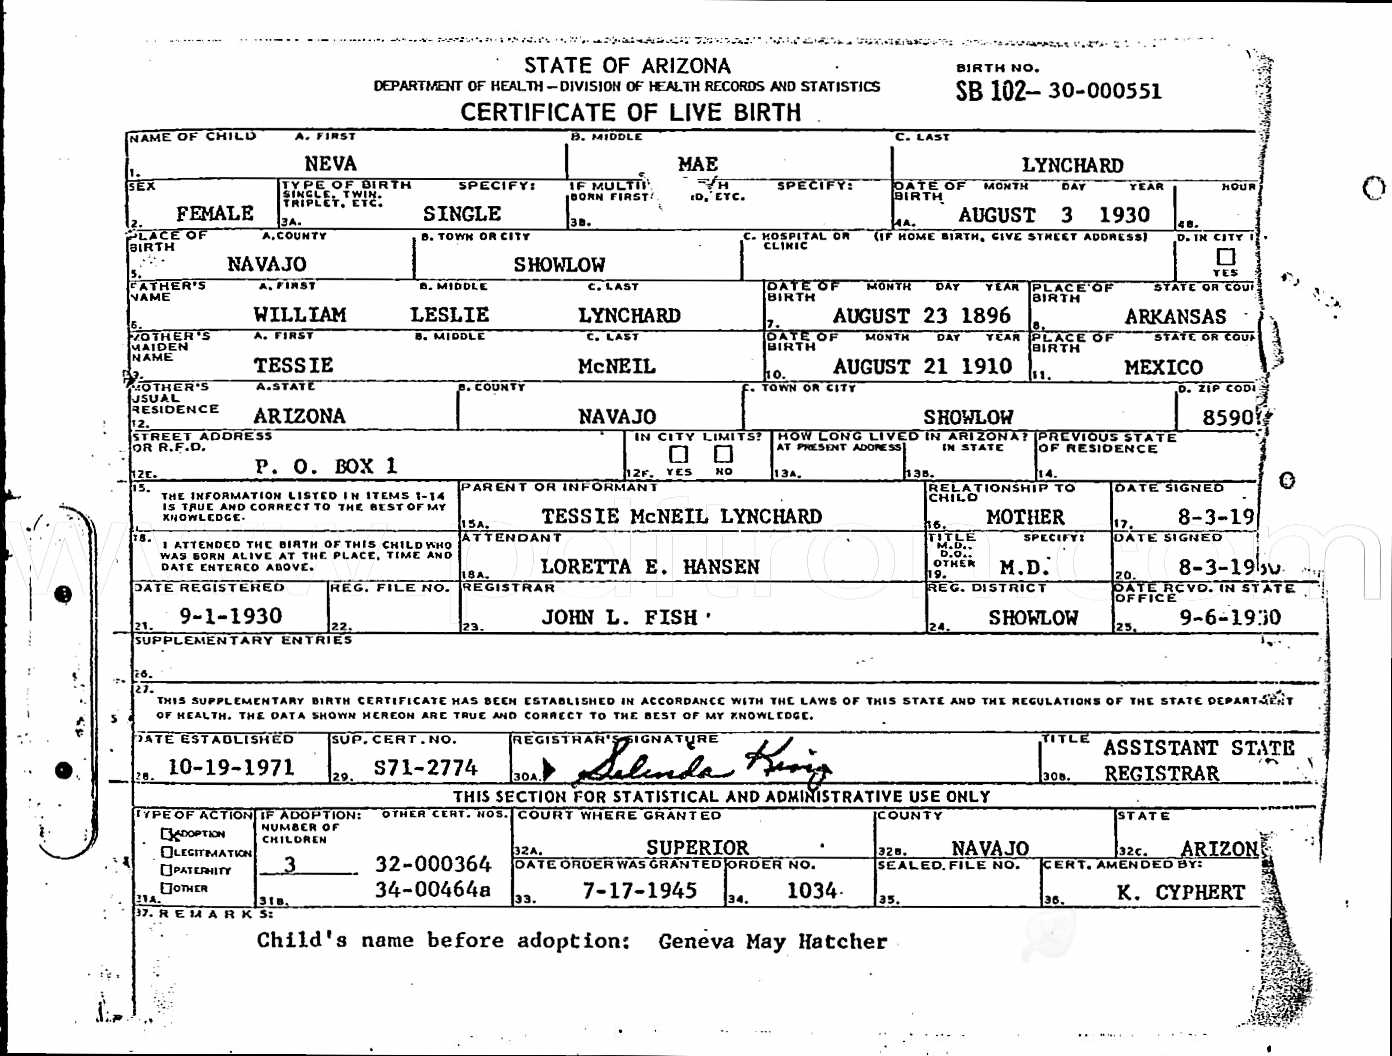 STATE OF ARIZONA
DEPARTMENT OF HEALTH—DIVISION OF HEALTH RECORDS AND STATISTICS
CERTIFICATE OF LIVE BIRTH
BIRTH NO.
SB 102- 30-000551
NAME OF CHILD A. FIRST B. MIDDLE C. LAST
1. NEVA MAE LYNCHARD
SEX
2. FEMALE
TYPE OF BIRTH SPECIFY:
SINGLE, TWIN,
TRIPLET, ETC.
3A. SINGLE
IF SPECIFY:
BORN FIRST ETC.
3B.
DATE OF BIRTH MONTH DAY YEAR
4A. AUGUST 3 1930
HOUR
4B.
PLACE OF BIRTH
5.
A. COUNTY
NAVAJO
B. TOWN OR CITY
SHOWLOW
C. HOSPITAL OR CLINIC (IF HOME BIRTH, GIVE STREET ADDRESS)
D. IN CITY
YES
FATHER'S NAME A. FIRST B. MIDDLE C. LAST
6. WILLIAM LESLIE LYNCHARD
DATE OF BIRTH MONTH DAY YEAR
7. AUGUST 23 1896
PLACE OF BIRTH STATE OR
8. ARKANSAS
MOTHER'S MAIDEN NAME A. FIRST B. MIDDLE C. LAST
9. TESSIE McNEIL
DATE OF BIRTH MONTH DAY YEAR
10. AUGUST 21 1910
PLACE OF BIRTH STATE OR
11. MEXICO
MOTHER'S USUAL RESIDENCE
12.
A. STATE
ARIZONA
B. COUNTY
NAVAJO
C. TOWN OR CITY
SHOWLOW
D. ZIP
8590
STREET ADDRESS
OR R.F.D.
12E. P. O. BOX 1
IN CITY LIMITS?
12F. YES NO
HOW LONG LIVED IN ARIZONA?
AT PRESENT ADDRESS IN STATE
13A. 13B.
PREVIOUS STATE
OF RESIDENCE
14.
15. THE INFORMATION LISTED IN ITEMS 1-14
IS TRUE AND CORRECT TO THE BEST OF MY
KNOWLEDGE.
PARENT OR INFORMANT
15A. TESSIE McNEIL LYNCHARD
RELATIONSHIP TO CHILD
16. MOTHER
DATE SIGNED
17. 8-3-19
18. I ATTENDED THE BIRTH OF THIS CHILD WHO
WAS BORN ALIVE AT THE PLACE, TIME AND
DATE ENTERED ABOVE.
ATTENDANT
18A. LORETTA E. HANSEN
TITLE SPECIFY:
M.D.,
D.O.,
OTHER
19. M.D.
DATE SIGNED
20. 8-3-1930
DATE REGISTERED
21. 9-1-1930
REG. FILE NO.
22.
REGISTRAR
23. JOHN L. FISH
REG. DISTRICT
24. SHOWLOW
DATE RCVD. IN STATE OFFICE
25. 9-6-1930
SUPPLEMENTARY ENTRIES
26.
27.
THIS SUPPLEMENTARY BIRTH CERTIFICATE HAS BEEN ESTABLISHED IN ACCORDANCE WITH THE LAWS OF THIS STATE AND THE REGULATIONS OF THE STATE DEPARTMENT
OF HEALTH. THE DATA SHOWN HEREON ARE TRUE AND CORRECT TO THE BEST OF MY KNOWLEDGE.
DATE ESTABLISHED
28. 10-19-1971
SUP. CERT. NO.
29. S71-2774
REGISTRAR'S SIGNATURE
30A. Selenda King
TITLE
30B. ASSISTANT STATE
REGISTRAR
THIS SECTION FOR STATISTICAL AND ADMINISTRATIVE USE ONLY
TYPE OF ACTION
ADOPTION
LEGITIMATION
PATERNITY
OTHER
31A.
IF ADOPTION: OTHER CERT. NOS.
NUMBER OF
CHILDREN
3 32-000364
34-00464a
31B.
COURT WHERE GRANTED
32A. SUPERIOR
COUNTY
32B. NAVAJO
STATE
32C. ARIZON
DATE ORDER WAS GRANTED
33. 7-17-1945
ORDER NO.
34. 1034
SEALED FILE NO.
35.
CERT. AMENDED BY:
36. K. CYPHERT
37. REMARKS:
Child's name before adoption: Geneva May Hatcher